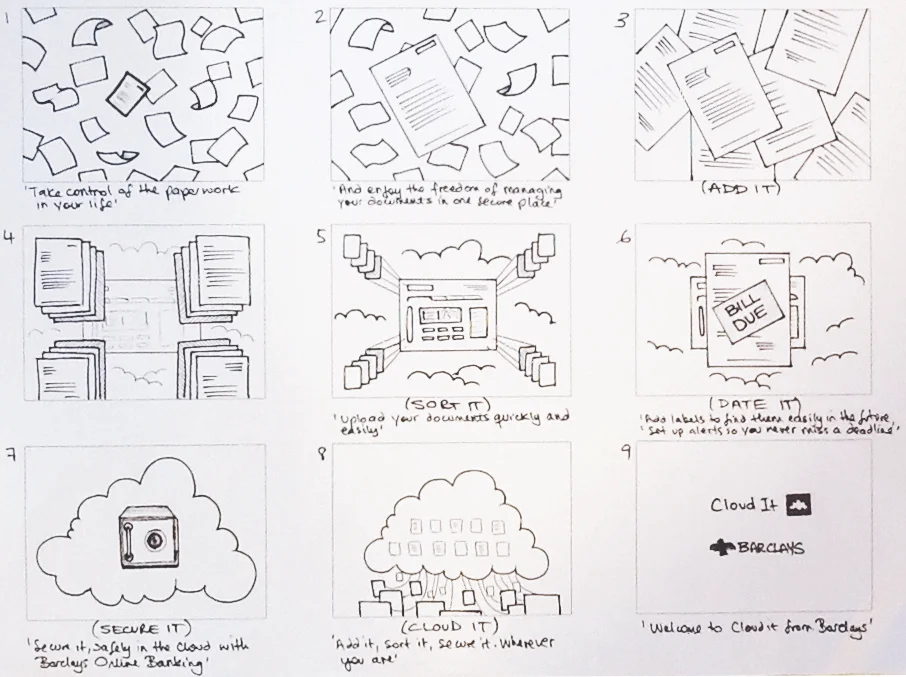 1
'Take control of the paperwork
in your life'
2
'And enjoy the freedom of managing
your documents in one secure place'
3
(ADD IT)
4
5
(SORT IT)
'Upload your documents quickly and
easily'
6
BILL
DUE
(DATE IT)
'Add labels to find them easily in the future,
'Set up alerts so you never miss a deadline'
7
(SECURE IT)
'Secure it, safely in the cloud with
Barclays Online Banking'
8
(CLOUD IT)
'Add it, sort it, secure it. Wherever
you are'
9
Cloud It
BARCLAYS
'Welcome to Cloud it from Barclays'